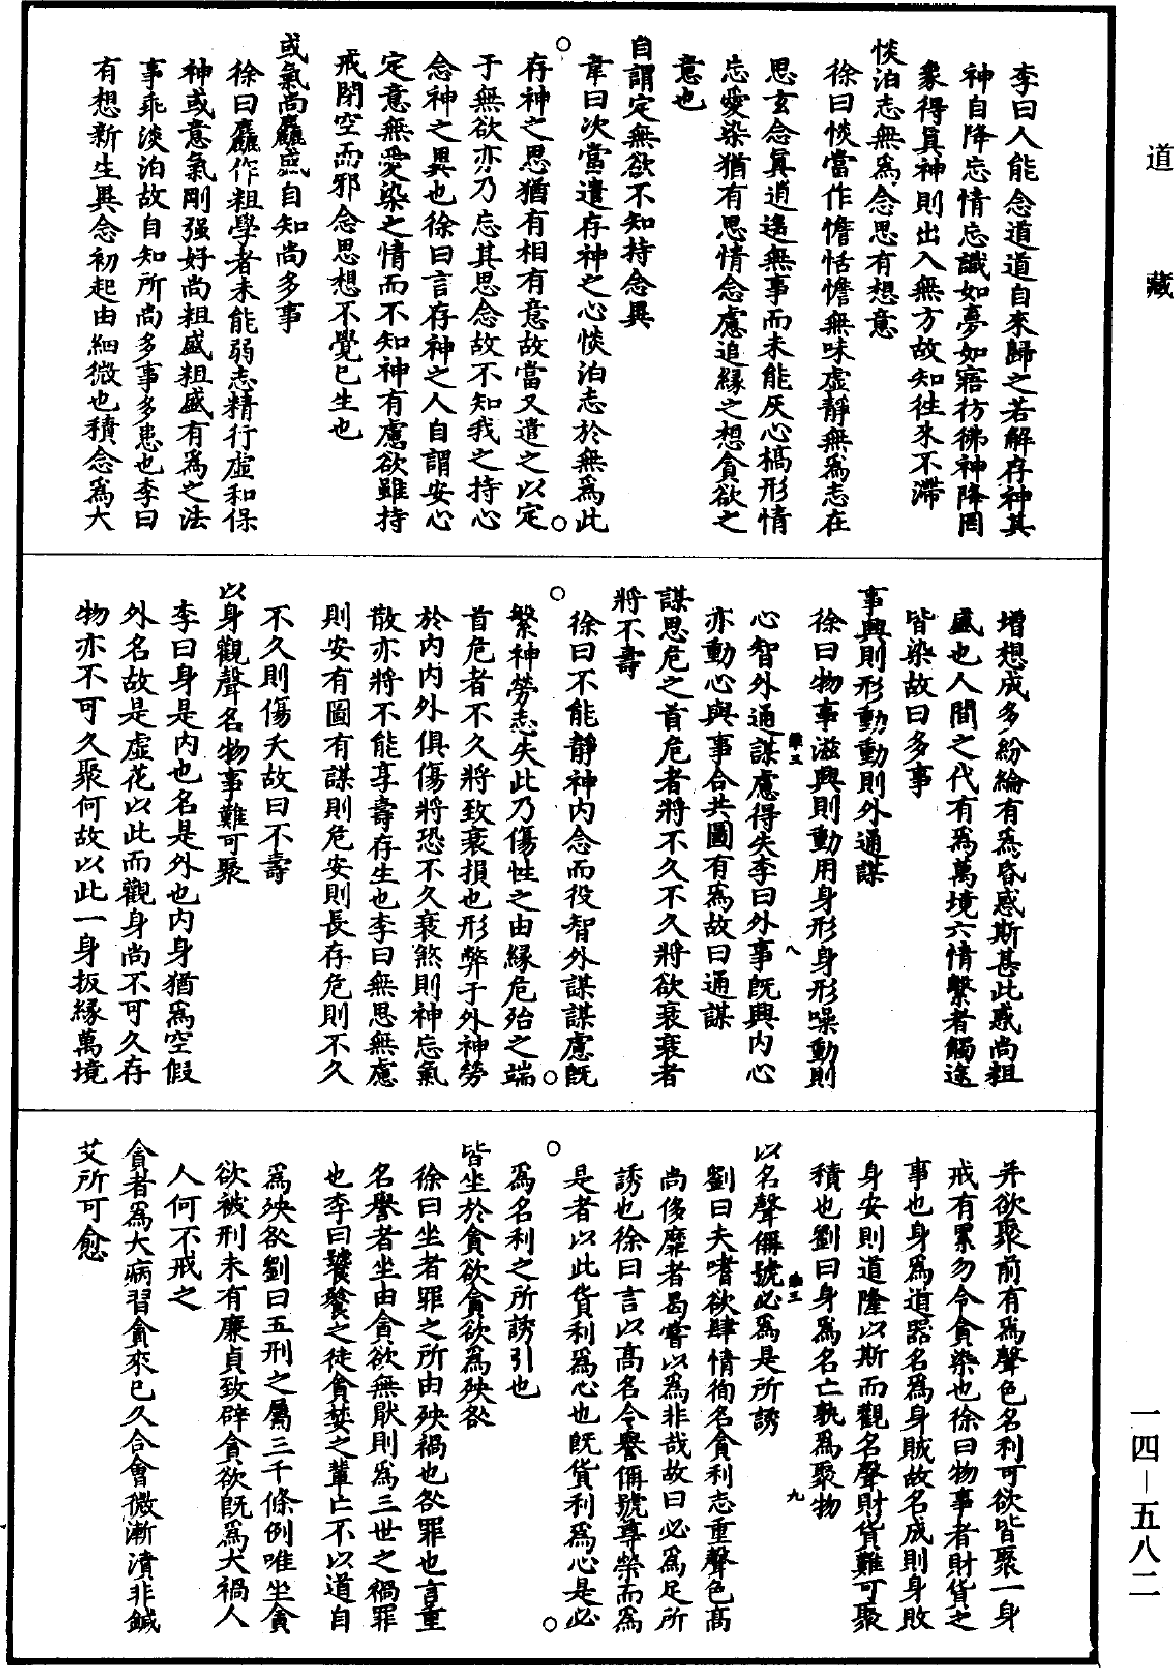 道藏
李曰人能念道道自來歸之若解存神其
神自降忘情忘識如夢如寤彷彿神降罔
象得真神則出入無方故知徃來不滯
惔泊志無爲念思有想意
徐曰惔當作憺恬憺無味虛靜無爲志在
思玄念真逍遙無事而未能灰心槁形情
忘愛染猶有思情念慮追緣之想貪欲之
意也
自謂定無欲不知持念異
韋曰次當遣存神之心惔泊志於無爲此
存神之思猶有相有意故當又遣之以定
于無欲亦乃忘其思念故不知我之持心
念神之異也徐曰言存神之人自謂安心
定意無愛染之情而不知神有慮欲雖持
戒閉空而邪念思想不覺已生也
或氣尚麤盛自知尚多事
徐曰麤作粗學者未能弱志精行虛和保
神或意氣剛强好尚粗盛粗盛有爲之法
事乖淡泊故自知所尚多事多患也李曰
有想新生異念初起由細微也積念爲大
增想成多紛綸有爲昏惑斯甚此惑尚粗
盛也人間之代有爲萬境六情繫者觸途
皆染故曰多事
事興則形動動則外通謀
徐曰物事滋興則動用身形身形噪動則
心智外通謀慮得失李曰外事旣興内心
亦動心與事合共圖有爲故曰通謀
謀思危之首危者將不久不久將欲衰衰者
將不壽
徐曰不能靜神内念而役智外謀謀慮旣
繁神勞志失此乃傷性之由緣危殆之端
首危者不久將致衰損也形弊于外神勞
於内内外俱傷將恐不久衰煞則神忘氣
散亦將不能享壽存生也李曰無思無慮
則安有圖有謀則危安則長存危則不久
不久則傷夭故曰不壽
以身觀聲名物事難可聚
李曰身是内也名是外也内身猶爲空假
外名故是虛花以此而觀身尚不可久存
物亦不可久聚何故以此一身扳緣萬境
并欲聚前有爲聲色名利可欲皆聚一身
戒有累勿令貪染也徐曰物事者財貨之
事也身爲道器名爲身賊故名成則身敗
身安則道隆以斯而觀名聲財貨難可聚
積也劉曰身爲名亡孰爲聚物
以名聲偁號必爲是所誘
劉曰夫嗜欲肆情徇名貪利志重聲色高
尚侈靡者曷嘗以爲非哉故曰必爲足所
誘也徐曰言以高名令譽偁號尊榮而爲
是者以此貨利爲心也旣貨利爲心是必
爲名利之所誘引也
皆坐於貪欲貪欲爲殃咎
徐曰坐者罪之所由殃禍也咎罪也言重
名譽者坐由貪欲無猒則爲三世之禍罪
也李曰饕餮之徒貪婪之輩亡不以道自
爲殃咎劉曰五刑之屬三千條例唯坐貪
欲被刑未有廉貞致辟貪欲旣爲大禍人
人何不戒之
貪者爲大病習貪來已久合會微漸漬非鍼
艾所可愈
八
九
一四—五八二